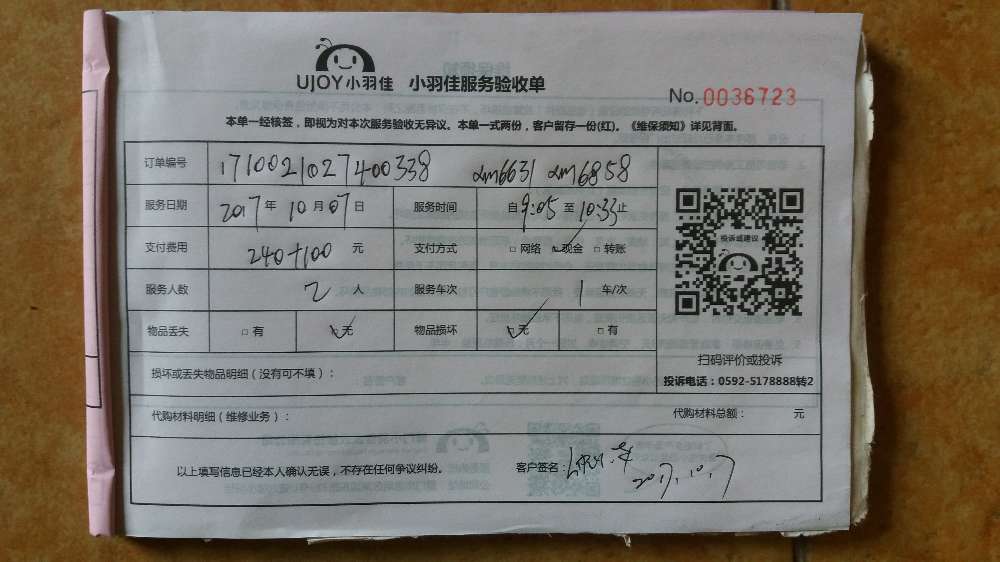 UJOY小羽佳 小羽佳服务验收单
No.0036723
本单一经核签，即视为对本次服务验收无异议。本单一式两份，客户留存一份(红)。《维保须知》详见背面。
订单编号 1710021027400338 xm6631 xm6858
服务日期 2017年10月07日 服务时间 自9:05至10:33止
投诉或建议
支付费用 240+100 元 支付方式 □网络 ☑现金 □转账
服务人数 2人 服务车次 1 车/次
物品丢失 □有 ☑无 物品损坏 ☑无 □有
扫码评价或投诉
损坏或丢失物品明细（没有可不填）：
投诉电话：0592-5178888转2
代购材料明细（维修业务）： 代购材料总额： 元
以上填写信息已经本人确认无误，不存在任何争议纠纷。 客户签名：
2017.10.7